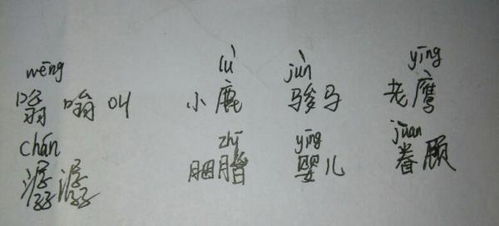 wēng lù jùn yīng
嗡嗡叫 小鹿 骏马 老鹰
chán zhī yīng juàn
潺潺 胭脂 婴儿 眷顾